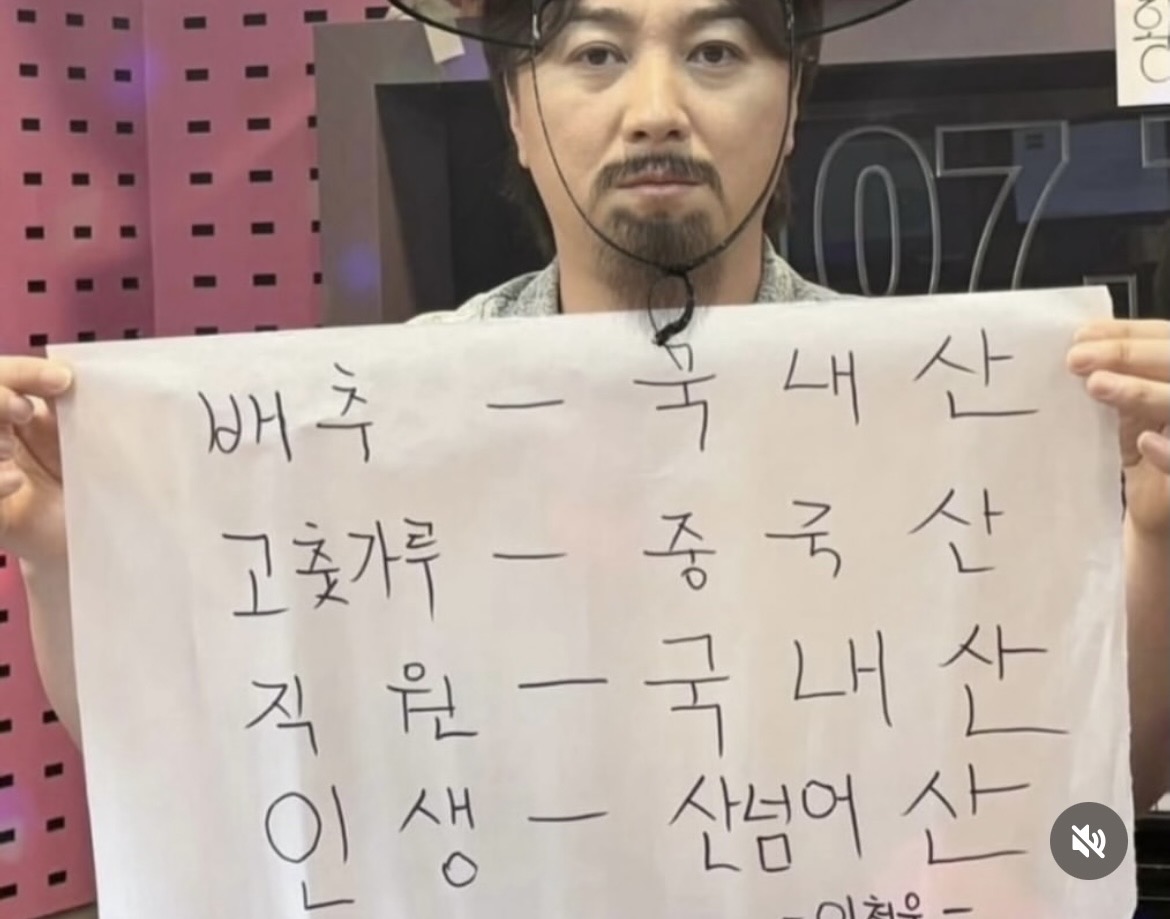 배추 - 국내산
고춧가루 - 중국산
직원 - 국내산
인생 - 산넘어산
07